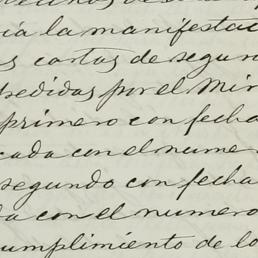 ia la manifestac
s cartas de segur
pedidas por el Mi
primero con fecha
cada con el nume
segundo con fecha
da con el numero
umplimiento de lo